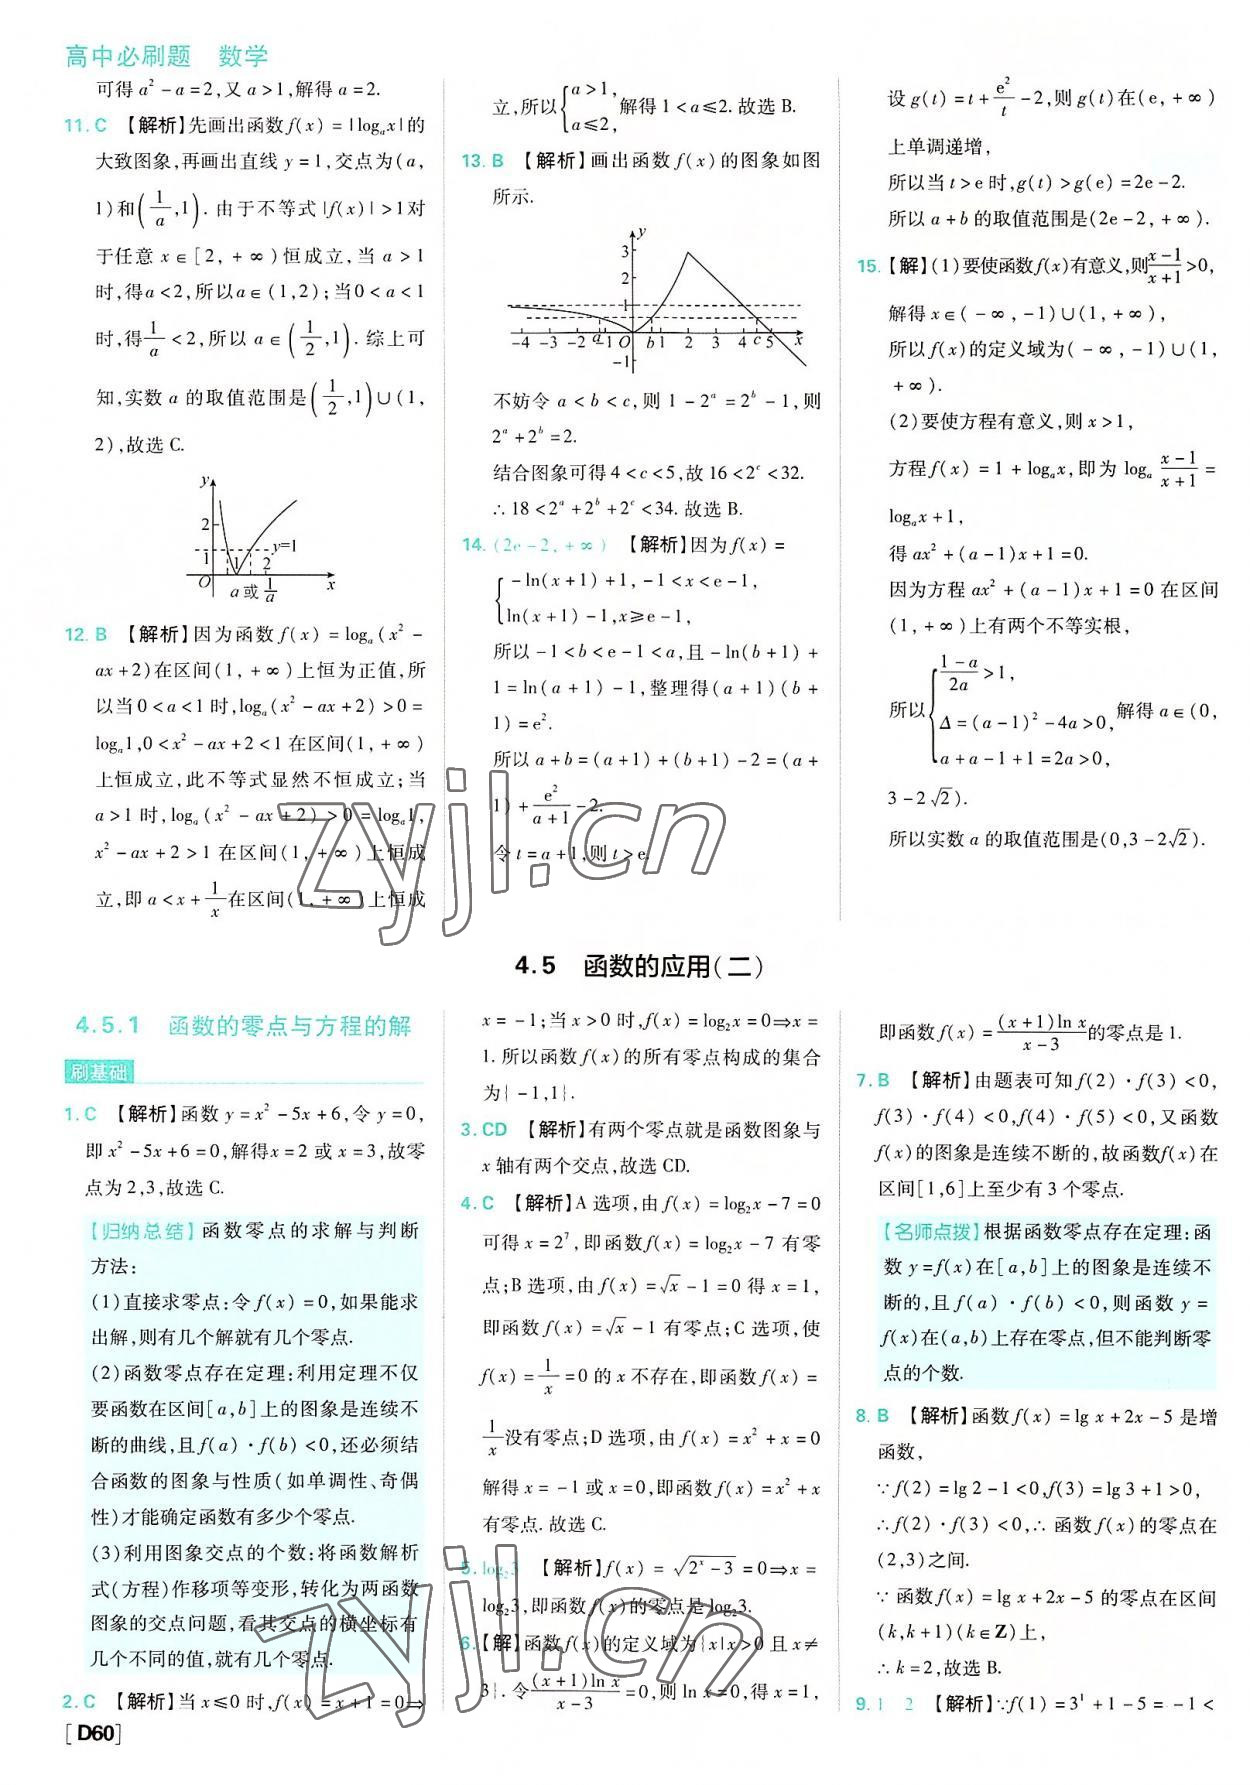 高中必刷题　数学
可得 a² - a = 2, 又 a > 1, 解得 a = 2.
11. C 【解析】先画出函数 f(x) = |logₐx| 的
大致图象, 再画出直线 y = 1, 交点为 (a,
1) 和 (1/a, 1). 由于不等式 |f(x)| > 1 对
于任意 x ∈ [2, +∞) 恒成立, 当 a > 1
时, 得 a < 2, 所以 a ∈ (1,2); 当 0 < a < 1
时, 得 1/a < 2, 所以 a ∈ (1/2, 1). 综上可
知, 实数 a 的取值范围是 (1/2, 1) ∪ (1,
2), 故选 C.
y
2
1
y=1
O
1
2
x
a 或 1/a
12. B 【解析】因为函数 f(x) = logₐ(x² -
ax + 2) 在区间 (1, +∞) 上恒为正值, 所
以当 0 < a < 1 时, logₐ(x² - ax + 2) > 0 =
logₐ1, 0 < x² - ax + 2 < 1 在区间 (1, +∞)
上恒成立, 此不等式显然不恒成立; 当
a > 1 时, logₐ(x² - ax + 2) > 0 = logₐ1,
x² - ax + 2 > 1 在区间 (1, +∞) 上恒成
立, 即 a < x + 1/x 在区间 (1, +∞) 上恒成
立, 所以 { a > 1, a ≤ 2, 解得 1 < a ≤ 2. 故选 B.
13. B 【解析】画出函数 f(x) 的图象如图
所示.
y
3
2
1
-4 -3 -2 a -1 O b 1 2 3 4 c 5 x
-1
不妨令 a < b < c, 则 1 - 2ᵃ = 2ᵇ - 1, 则
2ᵃ + 2ᵇ = 2.
结合图象可得 4 < c < 5, 故 16 < 2ᶜ < 32.
∴ 18 < 2ᵃ + 2ᵇ + 2ᶜ < 34. 故选 B.
14. (2e - 2, +∞) 【解析】因为 f(x) =
{ -ln(x + 1) + 1, -1 < x < e - 1,
ln(x + 1) - 1, x ≥ e - 1,
所以 -1 < b < e - 1 < a, 且 -ln(b + 1) +
1 = ln(a + 1) - 1, 整理得 (a + 1)(b +
1) = e².
所以 a + b = (a + 1) + (b + 1) - 2 = (a +
1) + e²/(a + 1) - 2.
令 t = a + 1, 则 t > e.
设 g(t) = t + e²/t - 2, 则 g(t) 在 (e, +∞)
上单调递增,
所以当 t > e 时, g(t) > g(e) = 2e - 2.
所以 a + b 的取值范围是 (2e - 2, +∞).
15. 【解】(1) 要使函数 f(x) 有意义, 则 (x - 1)/(x + 1) > 0,
解得 x ∈ (-∞, -1) ∪ (1, +∞),
所以 f(x) 的定义域为 (-∞, -1) ∪ (1,
+∞).
(2) 要使方程有意义, 则 x > 1,
方程 f(x) = 1 + logₐx, 即为 logₐ (x - 1)/(x + 1) =
logₐx + 1,
得 ax² + (a - 1)x + 1 = 0.
因为方程 ax² + (a - 1)x + 1 = 0 在区间
(1, +∞) 上有两个不等实根,
所以 { (1 - a)/2a > 1, Δ = (a - 1)² - 4a > 0, a + a - 1 + 1 = 2a > 0, 解得 a ∈ (0,
3 - 2√2).
所以实数 a 的取值范围是 (0, 3 - 2√2).
4.5　函数的应用(二)
4.5.1　函数的零点与方程的解
刷基础
1. C 【解析】函数 y = x² - 5x + 6, 令 y = 0,
即 x² - 5x + 6 = 0, 解得 x = 2 或 x = 3, 故零
点为 2, 3, 故选 C.
【归纳总结】函数零点的求解与判断
方法:
(1) 直接求零点: 令 f(x) = 0, 如果能求
出解, 则有几个解就有几个零点.
(2) 函数零点存在定理: 利用定理不仅
要函数在区间 [a, b] 上的图象是连续不
断的曲线, 且 f(a)·f(b) < 0, 还必须结
合函数的图象与性质(如单调性、奇偶
性)才能确定函数有多少个零点.
(3) 利用图象交点的个数: 将函数解析
式(方程)作移项等变形, 转化为两函数
图象的交点问题, 看其交点的横坐标有
几个不同的值, 就有几个零点.
2. C 【解析】当 x ≤ 0 时, f(x) = x + 1 = 0 ⇒
x = -1; 当 x > 0 时, f(x) = log₂x = 0 ⇒ x =
1. 所以函数 f(x) 的所有零点构成的集合
为 {-1, 1}.
3. CD 【解析】有两个零点就是函数图象与
x 轴有两个交点, 故选 CD.
4. C 【解析】A 选项, 由 f(x) = log₂x - 7 = 0
可得 x = 2⁷, 即函数 f(x) = log₂x - 7 有零
点; B 选项, 由 f(x) = √x - 1 = 0 得 x = 1,
即函数 f(x) = √x - 1 有零点; C 选项, 使
f(x) = 1/x = 0 的 x 不存在, 即函数 f(x) =
1/x 没有零点; D 选项, 由 f(x) = x² + x = 0
解得 x = -1 或 x = 0, 即函数 f(x) = x² + x
有零点. 故选 C.
5. log₂3 【解析】f(x) = √(2ˣ - 3) = 0 ⇒ x =
log₂3, 即函数 f(x) 的零点是 log₂3.
6. 【解】函数 f(x) 的定义域为 {x|x > 0 且 x ≠
3}. 令 (x + 1)ln x/(x - 3) = 0, 则 ln x = 0, 得 x = 1,
即函数 f(x) = (x + 1)ln x/(x - 3) 的零点是 1.
7. B 【解析】由题表可知 f(2)·f(3) < 0,
f(3)·f(4) < 0, f(4)·f(5) < 0, 又函数
f(x) 的图象是连续不断的, 故函数 f(x) 在
区间 [1, 6] 上至少有 3 个零点.
【名师点拨】根据函数零点存在定理: 函
数 y = f(x) 在 [a, b] 上的图象是连续不
断的, 且 f(a)·f(b) < 0, 则函数 y =
f(x) 在 (a, b) 上存在零点, 但不能判断零
点的个数.
8. B 【解析】函数 f(x) = lg x + 2x - 5 是增
函数,
∵ f(2) = lg 2 - 1 < 0, f(3) = lg 3 + 1 > 0,
∴ f(2)·f(3) < 0, ∴ 函数 f(x) 的零点在
(2, 3) 之间.
∵ 函数 f(x) = lg x + 2x - 5 的零点在区间
(k, k + 1)(k ∈ Z) 上,
∴ k = 2, 故选 B.
9. 1　2 【解析】∵ f(1) = 3¹ + 1 - 5 = -1 <
[D60]
zyjl.cn
zyjl.cn